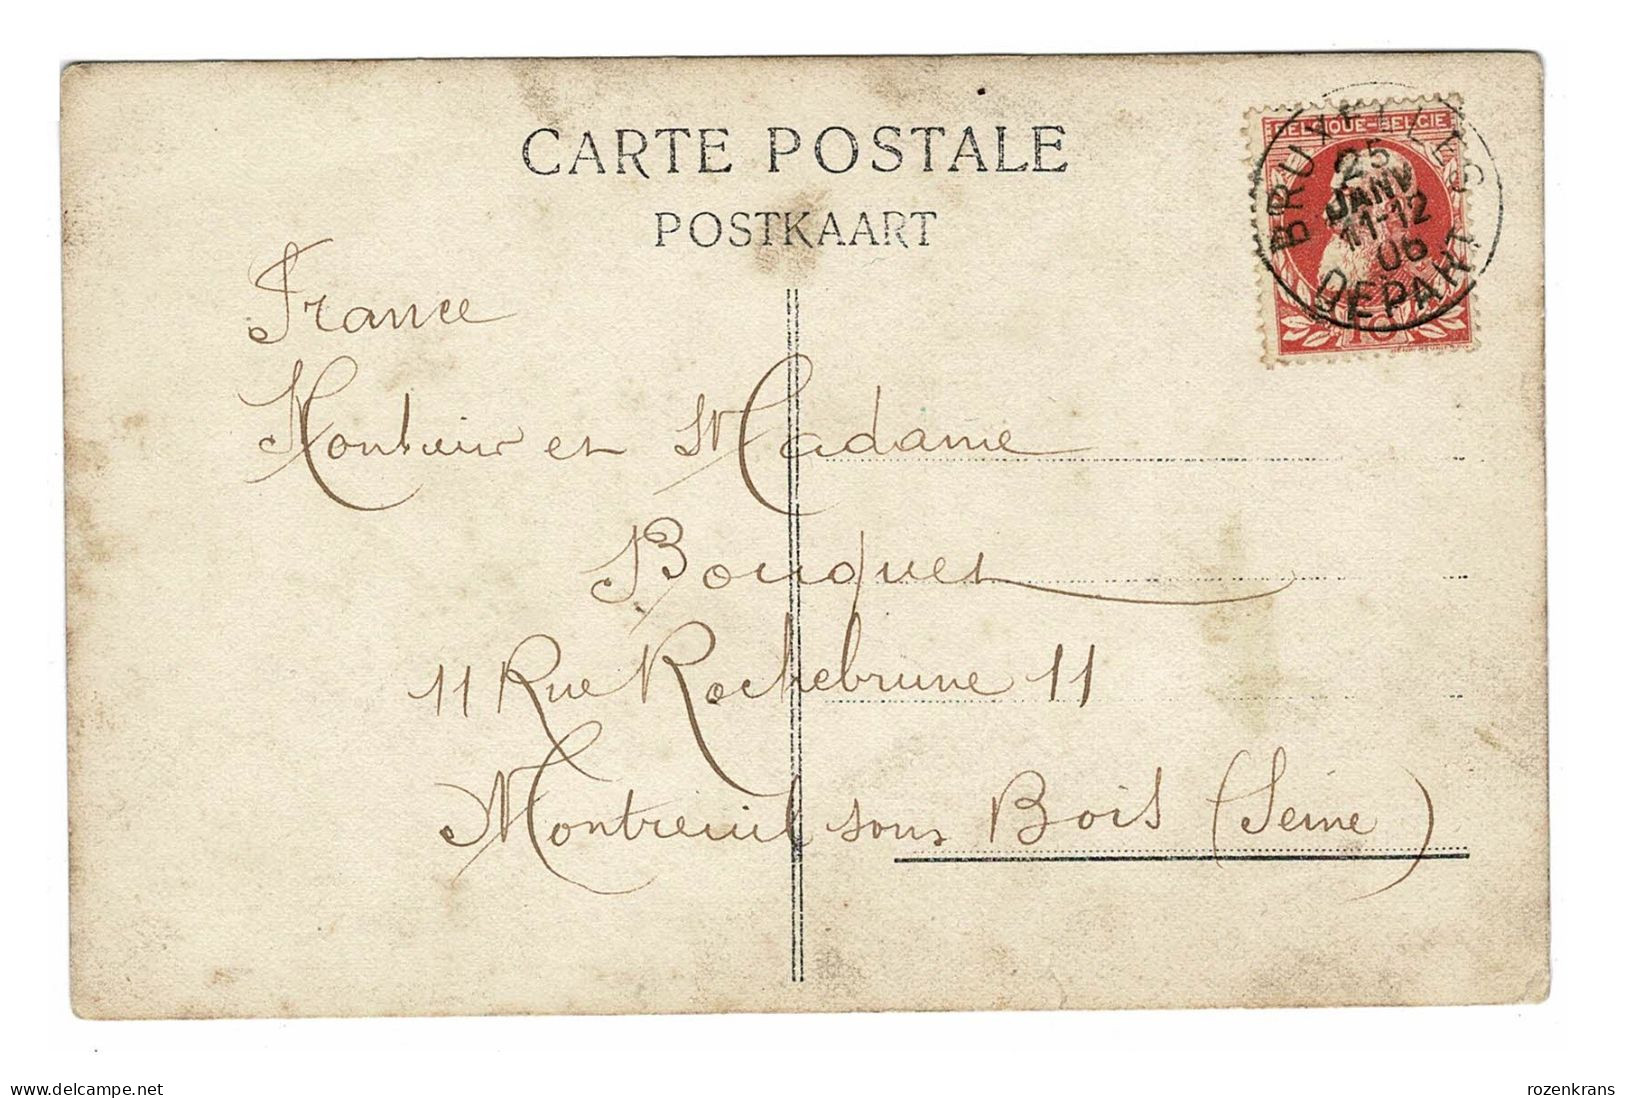 CARTE POSTALE
POSTKAART
BELGIQUE-BELGIE
BRUXELLES
25
JANV
11-12
06
DEPART
10
France
Monsieur et Madame
Bouquet
11 Rue Rochebrune 11
Montreuil sous Bois (Seine)
https://www.delcampe.net
rozenkrans